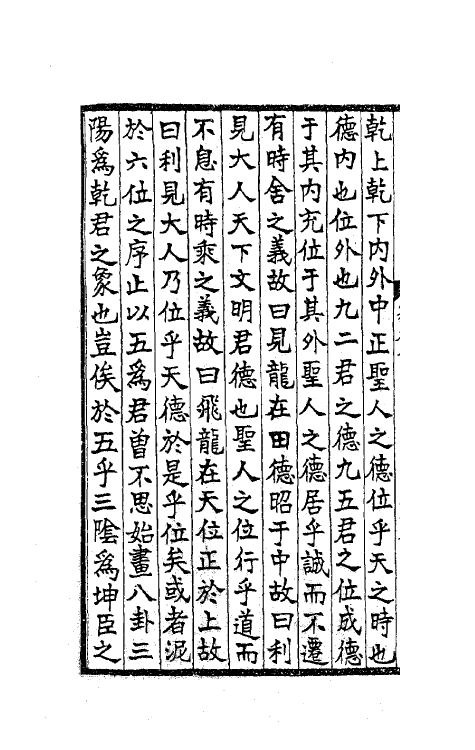 乾上乾下内外中正聖人之德位乎天之時也
德内也位外也九二君之德九五君之位成德
于其内充位于其外聖人之德居乎誠而不遷
有時舍之義故曰見龍在田德昭于中故曰利
見大人天下文明君德也聖人之位行乎道而
不息有時乘之義故曰飛龍在天位正於上故
曰利見大人乃位乎天德於是乎位矣或者泥
於六位之序止以五為君曾不思始畫八卦三
陽為乾君之象也豈俟於五乎三陰為坤臣之